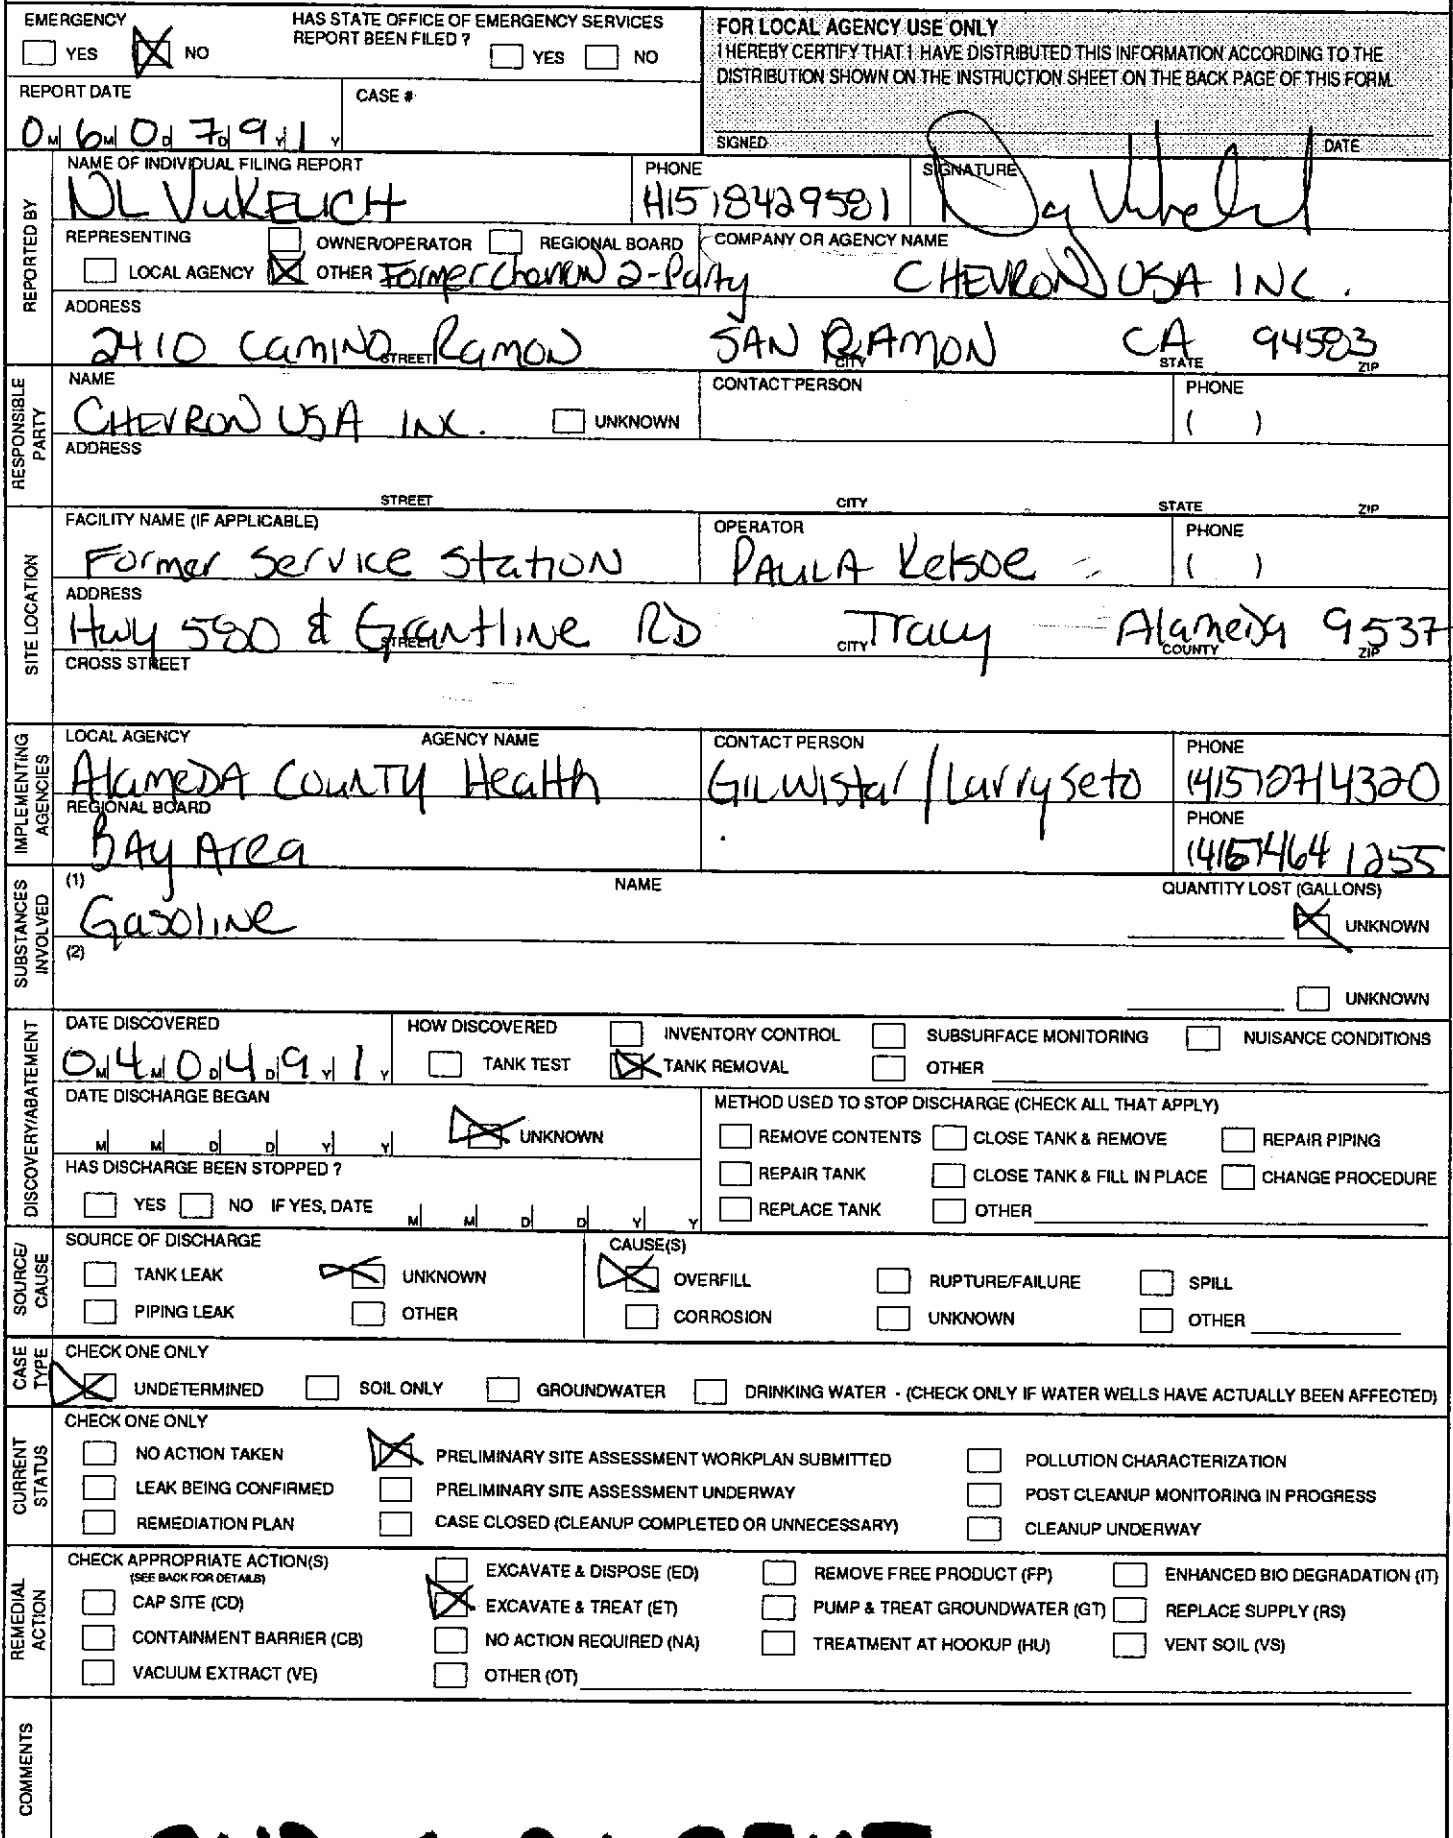 EMERGENCY
YES NO
HAS STATE OFFICE OF EMERGENCY SERVICES
REPORT BEEN FILED ?
YES NO
FOR LOCAL AGENCY USE ONLY
I HEREBY CERTIFY THAT I HAVE DISTRIBUTED THIS INFORMATION ACCORDING TO THE
DISTRIBUTION SHOWN ON THE INSTRUCTION SHEET ON THE BACK PAGE OF THIS FORM.
SIGNED DATE
REPORT DATE
0 M 6 M 0 D 7 D 9 Y 1 Y
CASE #
REPORTED BY
NAME OF INDIVIDUAL FILING REPORT
NL VUKELICH
PHONE
(415) 8429581
SIGNATURE
REPRESENTING
OWNER/OPERATOR REGIONAL BOARD
LOCAL AGENCY OTHER Former Chevron 2-Party
COMPANY OR AGENCY NAME
CHEVRON USA INC.
ADDRESS
2410 Camino Ramon SAN RAMON CA 94583
STREET CITY STATE ZIP
RESPONSIBLE PARTY
NAME
CHEVRON USA INC. UNKNOWN
CONTACT PERSON
PHONE
( )
ADDRESS
STREET CITY STATE ZIP
SITE LOCATION
FACILITY NAME (IF APPLICABLE)
Former Service Station
OPERATOR
PAULA Kelsoe
PHONE
( )
ADDRESS
Hwy 580 & Grantline RD Tracy Alameda 9537
STREET CITY COUNTY ZIP
CROSS STREET
IMPLEMENTING AGENCIES
LOCAL AGENCY AGENCY NAME
Alameda County Health
CONTACT PERSON
Gil Wistar / Larry Seto
PHONE
(415) 2714320
REGIONAL BOARD
BAy Area
PHONE
(415) 464 1255
SUBSTANCES INVOLVED
(1) NAME QUANTITY LOST (GALLONS)
Gasoline UNKNOWN
(2)
UNKNOWN
DISCOVERY/ABATEMENT
DATE DISCOVERED
0 M 4 M 0 D 4 D 9 Y 1 Y
HOW DISCOVERED
INVENTORY CONTROL SUBSURFACE MONITORING NUISANCE CONDITIONS
TANK TEST TANK REMOVAL OTHER
DATE DISCHARGE BEGAN
M M D D Y Y UNKNOWN
METHOD USED TO STOP DISCHARGE (CHECK ALL THAT APPLY)
REMOVE CONTENTS CLOSE TANK & REMOVE REPAIR PIPING
REPAIR TANK CLOSE TANK & FILL IN PLACE CHANGE PROCEDURE
REPLACE TANK OTHER
HAS DISCHARGE BEEN STOPPED ?
YES NO IF YES, DATE M M D D Y Y
SOURCE/ CAUSE
SOURCE OF DISCHARGE
TANK LEAK UNKNOWN
PIPING LEAK OTHER
CAUSE(S)
OVERFILL RUPTURE/FAILURE SPILL
CORROSION UNKNOWN OTHER
CASE TYPE
CHECK ONE ONLY
UNDETERMINED SOIL ONLY GROUNDWATER DRINKING WATER - (CHECK ONLY IF WATER WELLS HAVE ACTUALLY BEEN AFFECTED)
CURRENT STATUS
CHECK ONE ONLY
NO ACTION TAKEN PRELIMINARY SITE ASSESSMENT WORKPLAN SUBMITTED POLLUTION CHARACTERIZATION
LEAK BEING CONFIRMED PRELIMINARY SITE ASSESSMENT UNDERWAY POST CLEANUP MONITORING IN PROGRESS
REMEDIATION PLAN CASE CLOSED (CLEANUP COMPLETED OR UNNECESSARY) CLEANUP UNDERWAY
REMEDIAL ACTION
CHECK APPROPRIATE ACTION(S)
(SEE BACK FOR DETAILS)
EXCAVATE & DISPOSE (ED) REMOVE FREE PRODUCT (FP) ENHANCED BIO DEGRADATION (IT)
CAP SITE (CD) EXCAVATE & TREAT (ET) PUMP & TREAT GROUNDWATER (GT) REPLACE SUPPLY (RS)
CONTAINMENT BARRIER (CB) NO ACTION REQUIRED (NA) TREATMENT AT HOOKUP (HU) VENT SOIL (VS)
VACUUM EXTRACT (VE) OTHER (OT)
COMMENTS